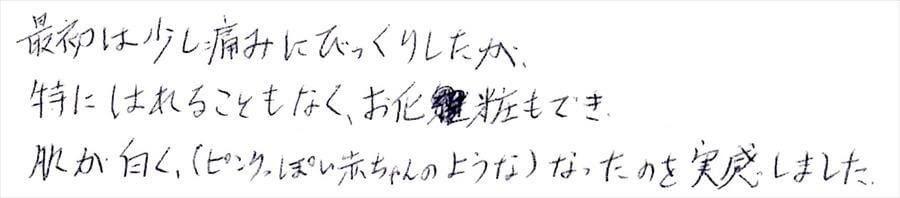 最初は少し痛みにびっくりしたが、
特にはれることもなく、お化粧もでき、
肌が白く、(ピンクっぽい赤ちゃんのような)なったのを実感しました。